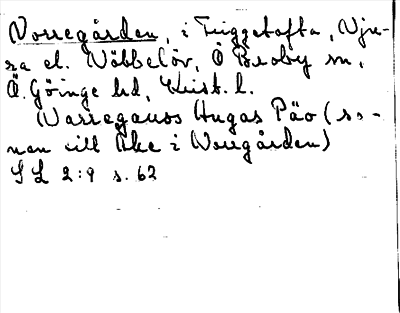 Norregården, i Triggetofta, Nju-
ra el. Nöbbelöv, Ö Broby sn,
Ö. Göinge hd, Krist. l.
Narregauos Hugas Päo (so-
nen till Åke i Norregården)
SL 2:9 s. 62